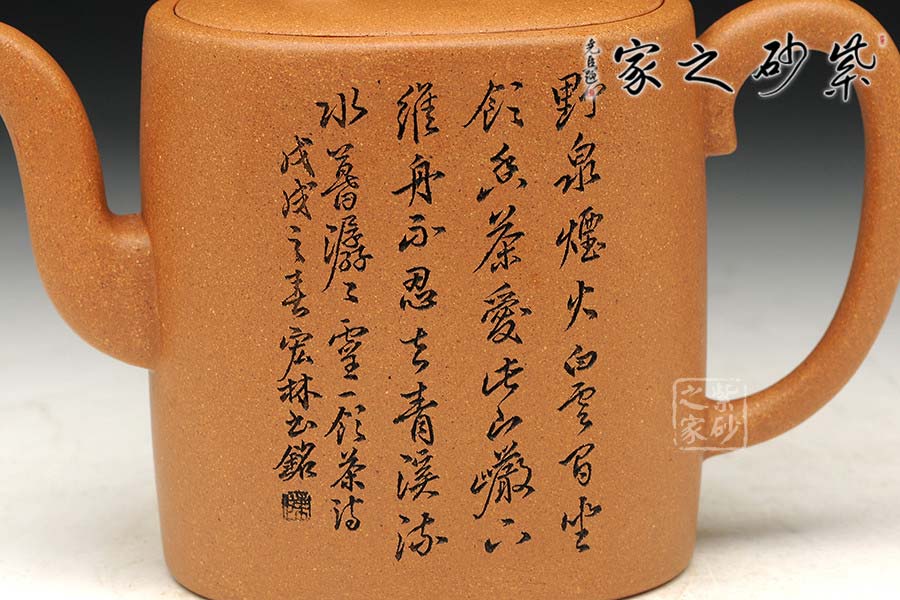 紫砂之家
野泉煙火白雲間坐
飲香茶愛此山巖下
維舟不忍去青溪流
水暮潺〻靈一飲茶詩
戊戌之春宏林書銘
紫砂之家